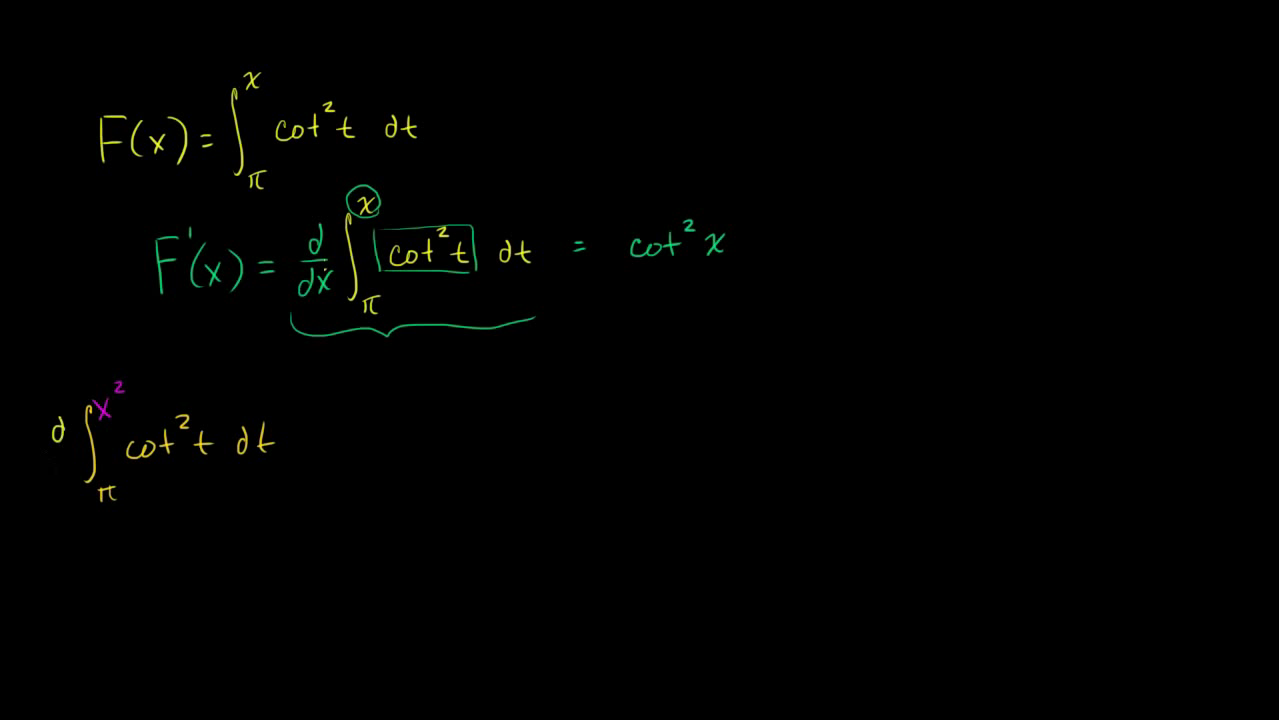 F(x) = ∫_π^x cot² t dt
F'(x) = d/dx ∫_π^x cot² t dt = cot² x
d ∫_π^x² cot² t dt